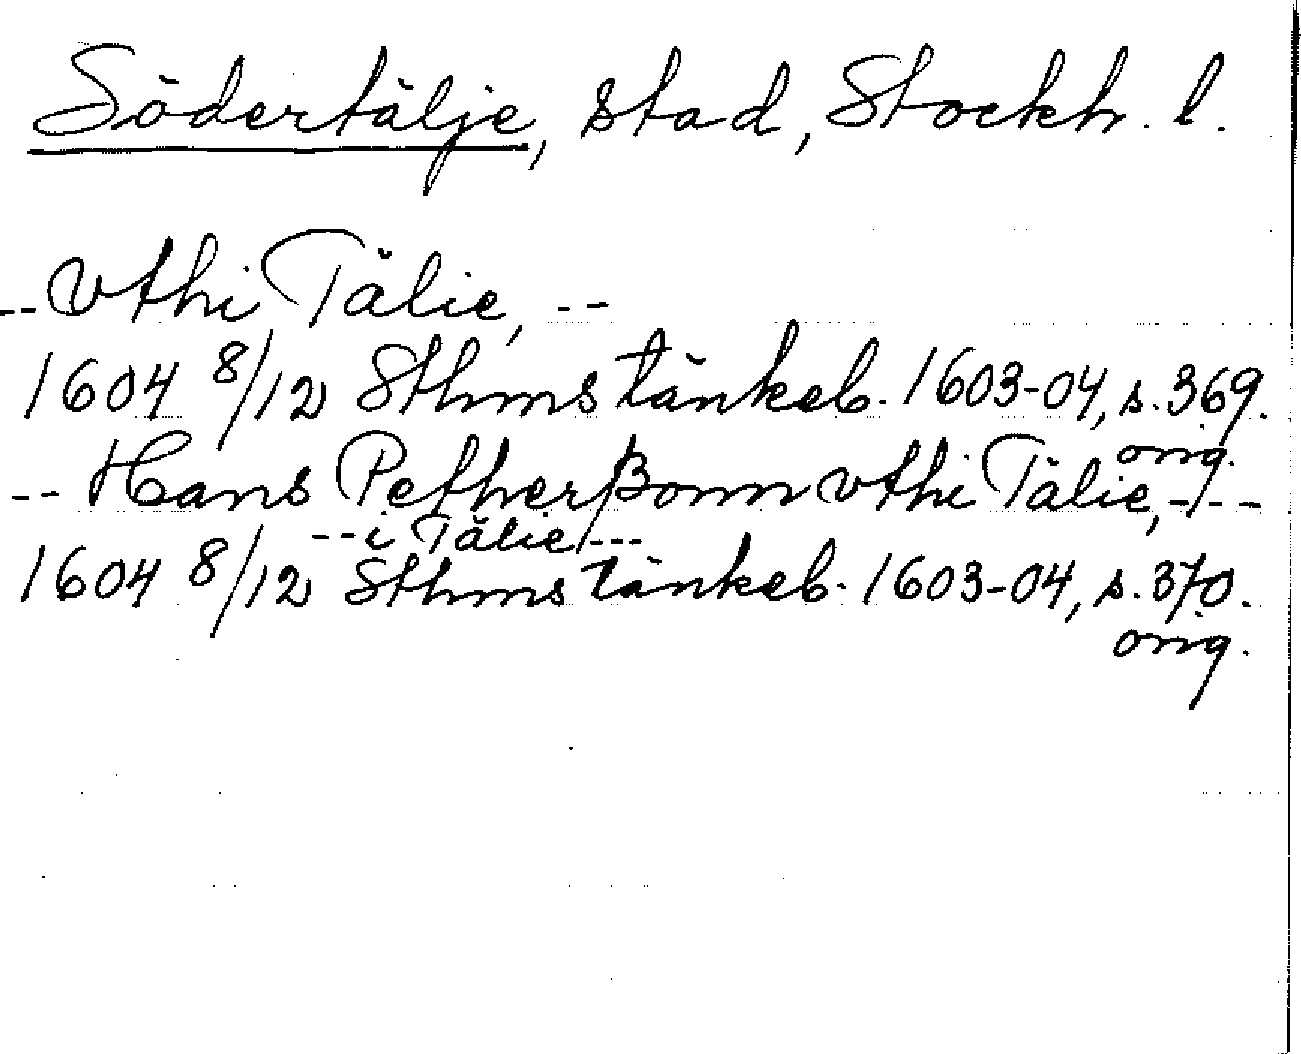 Södertälje, stad, Stockh. l.
-- vthi Tälie, --
1604 8/12 Sthms tänkeb. 1603-04, s. 369.
orig.
-- Hans Petherßonn vthi Tälie, ---
-- i Tälie ---
1604 8/12 Sthms tänkeb. 1603-04, s. 370.
orig.